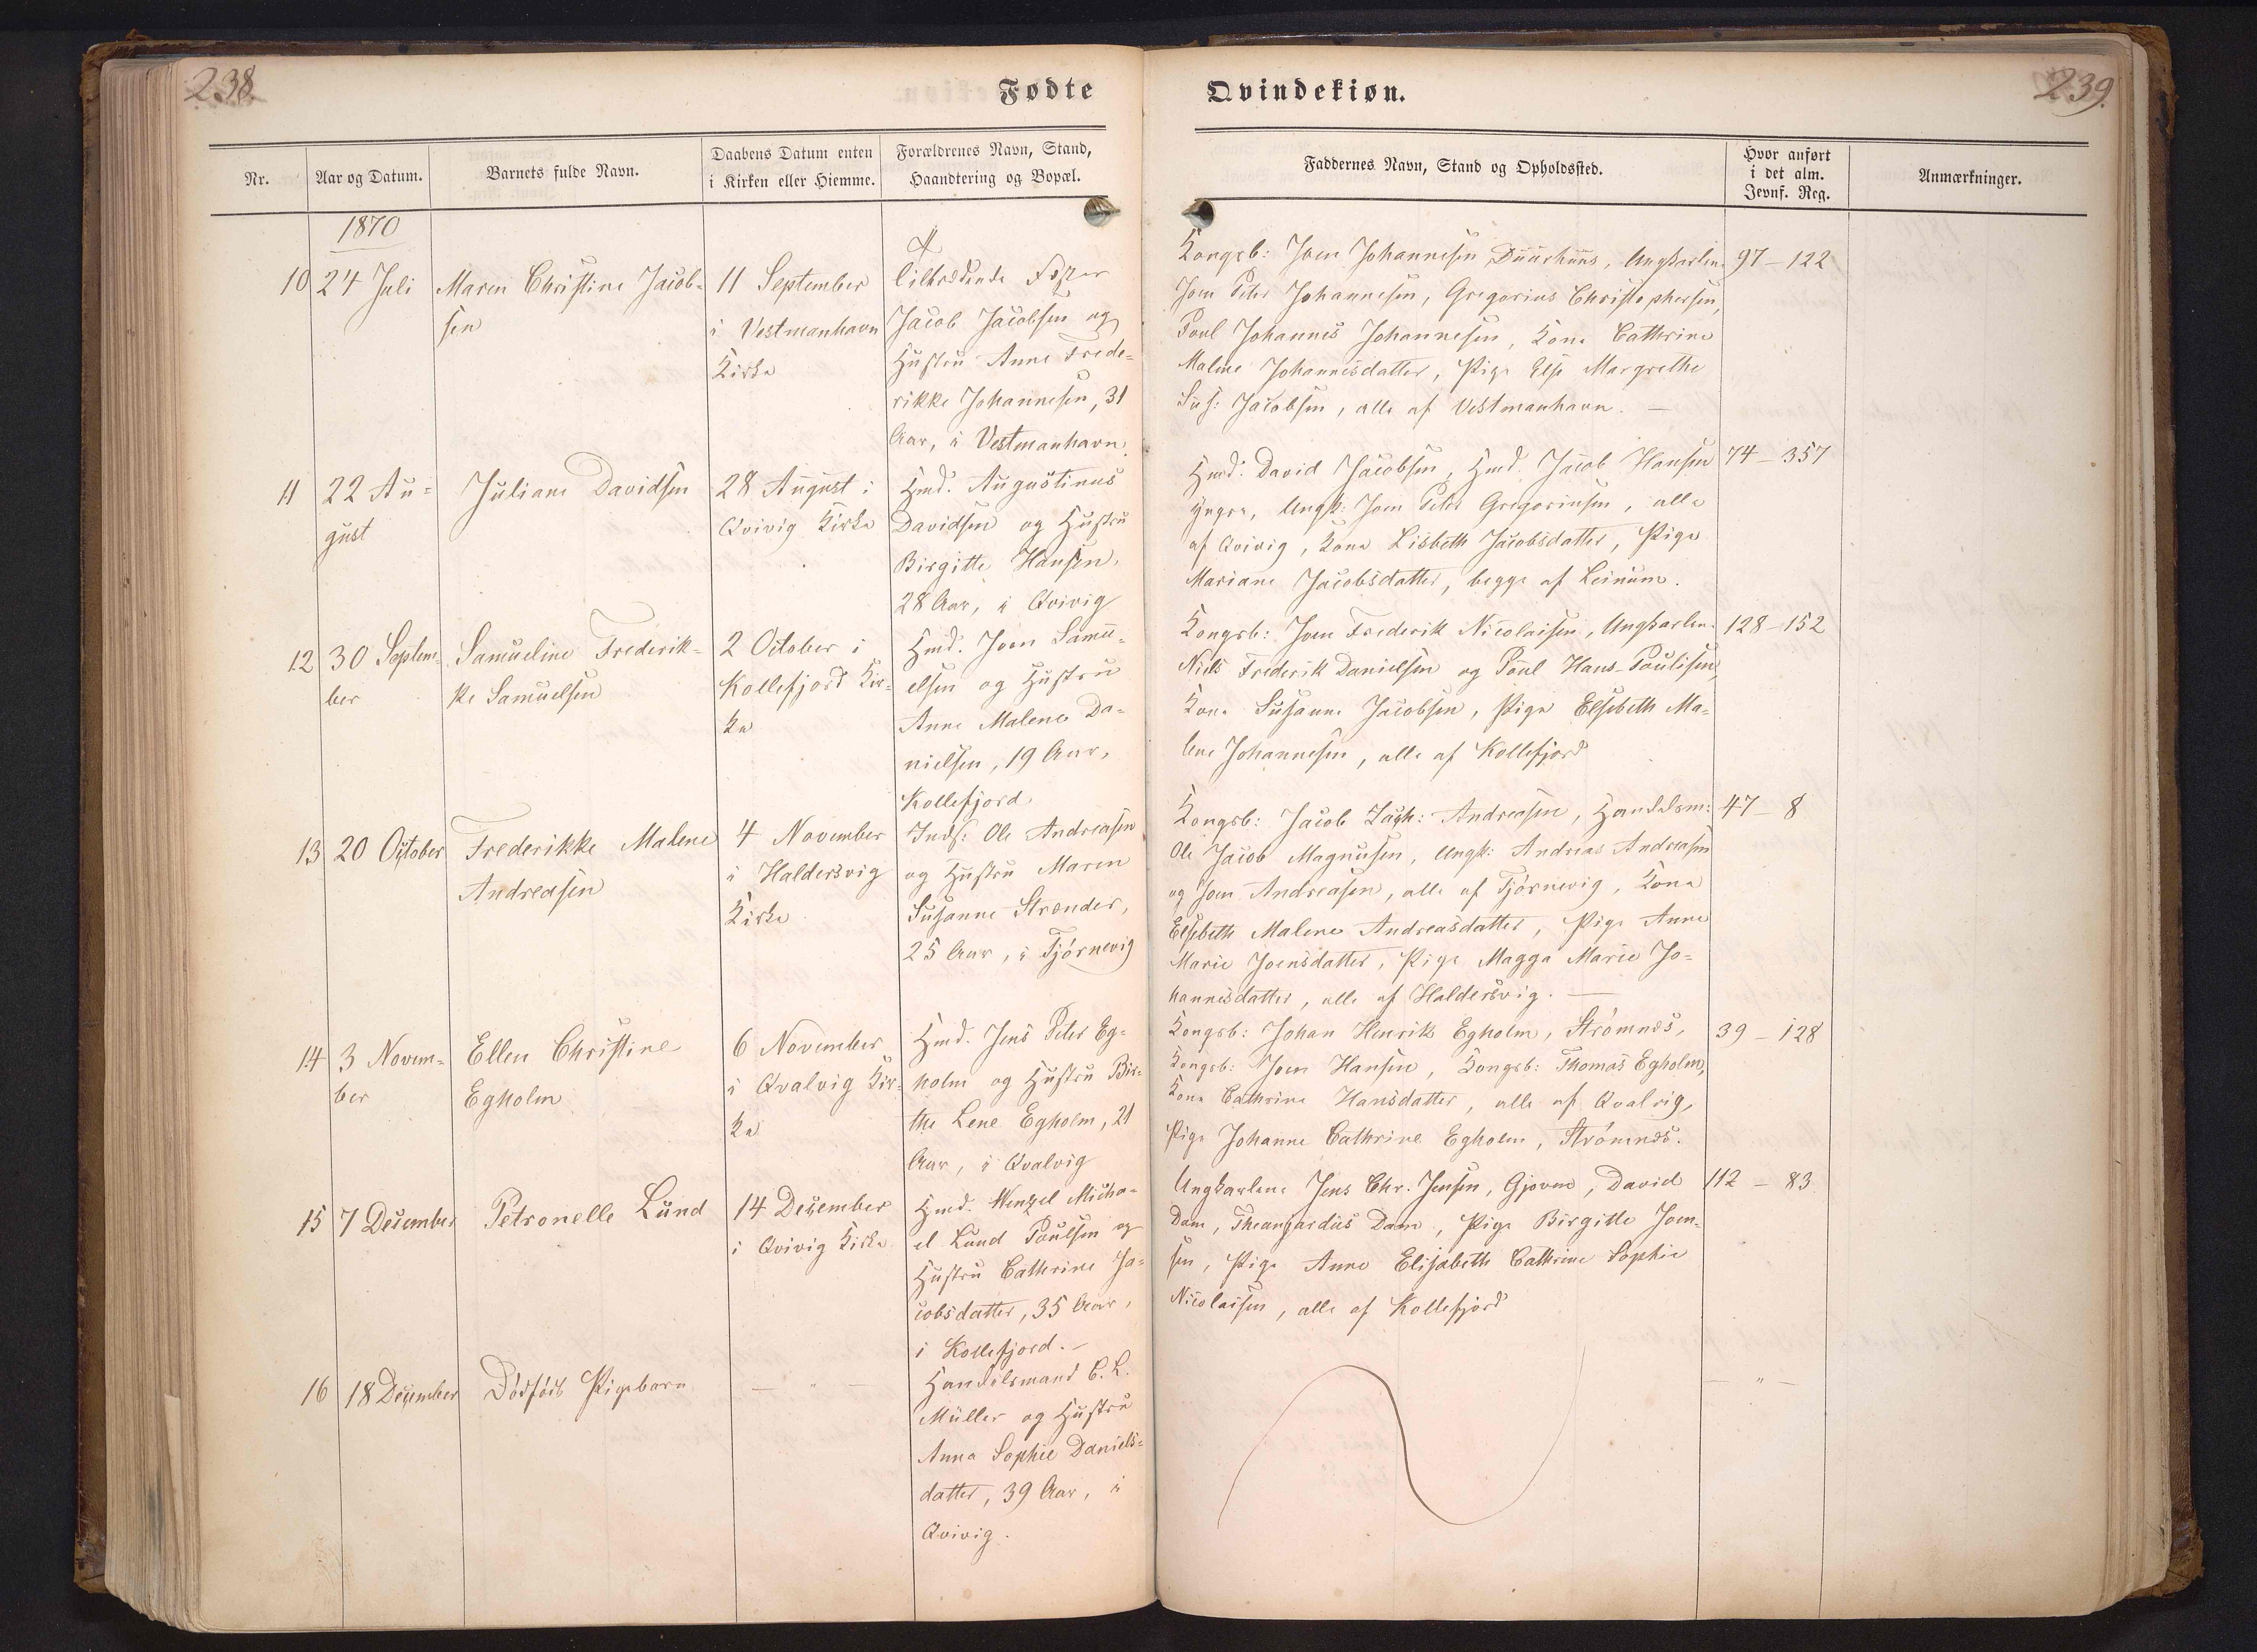 238.
Fødte
Nr.
Aar og Datum.
Barnets fulde Navn.
Daabens Datum enten
i Kirken eller Hiemme.
Forældrenes Navn, Stand,
Haandtering og Bopæl.
1870
10
24 Juli
Maren Christine Jacob-
sen
11 September
i Vestmanhavn
Kirke
Jacob Jacobsen og
Hustru Anne Frede-
rikke Johannesen, 31
Aar, i Vestmanhavn.
11
22 Au-
gust
Juliane Davidsen
28 August i
Qvivig Kirke
Hmd. Augustinus
Davidsen og Hustru
Birgitte Hansen,
28 Aar, i Qvivig
12
30 Septem-
ber
Samueline Frederik-
ke Samuelsen
2 October i
Kollefjord Kir-
ke
Hmd. Joen Samu-
elsen og Hustru
Anne Malene Da-
nielsen, 19 Aar,
Kollefjord
13
20 October
Frederikke Malene
Andreasen
4 November
i Haldersvig
Kirke
Inds: Ole Andreasen
og Hustru Maren
Susanne Strønder,
25 Aar, i Tjørnevig
14
3 Novem-
ber
Ellen Christine
Egholm
6 November
i Qvalvig Kir-
ke
Hmd. Jens Peter Eg-
holm og Hustru Bir-
the Lene Egholm, 21
Aar, i Qvalvig
15
7 December
Petronelle Lund
14 December
i Qvivig Kirke
Hmd. Wenzel Micha-
el Lund Poulsen og
Hustru Cathrine Ja-
cobsdatter, 35 Aar,
i Kollefjord. -
16
18 December
Dødfødt Pigebarn
— " —
Handelsmand C. L.
Müller og Hustru
Anna Sophie Daniels-
datter, 39 Aar, i
Qvivig.
239.
Qvindekiøn.
Faddernes Navn, Stand og Opholdssted.
Hvor anført
i det alm.
Jevnf. Reg.
Anmærkninger.
Kongsb: Joen Johannesen Duurhuus, Ungkarlene
Joen Peter Johannesen, Gregorius Christophersen,
Poul Johannes Johannesen, Kone Cathrine
Malene Johannesdatter, Pige Else Margrethe
Sus: Jacobsen, alle af Vestmanhavn. —
97 – 122
Hmd. David Jacobsen, Hmd. Jacob Hansen
yngre, Ungk: Joen Peter Gregoriusen, alle
af Qvivig, Kone Lisbeth Jacobsdatter, Pige
Mariane Jacobsdatter, begge af Leinum.
74 – 357
Kongsb: Joen Frederik Nicolaisen, Ungkarlene
Niels Frederik Danielsen og Poul Hans Paulisen,
Kone Susanne Jacobsen, Pige Elsebeth Ma-
lene Johannesen, alle af Kollefjord
128 – 152
Kongsb: Jacob Zach: Andreasen, Handelsm:
Ole Jacob Magnusen, Ungk: Andreas Andreasen
og Joen Andreasen, alle af Tjørnevig, Kone
Elsebeth Malene Andreasdatter, Pige Anne
Marie Joensdatter, Pige Magga Marie Jo-
hannesdatter, alle af Haldersvig. —
47 – 8
Kongsb: Johan Henrik Egholm, Strømnæs,
Kongsb: Joen Hansen, Kongsb: Thomas Egholm,
Kone Cathrine Hansdatter, alle af Qvalvig,
Pige Johanne Cathrine Egholm, Strømnæs.
39 – 128
Ungkarlene Jens Chr. Jensen, Gjovne, David
Dam, Dam, Pige Birgitte Joen-
sen, Pige Anne Elisabeth Cathrine Sophie
Nicolaisen, alle af Kollefjord
112 – 83
— " —